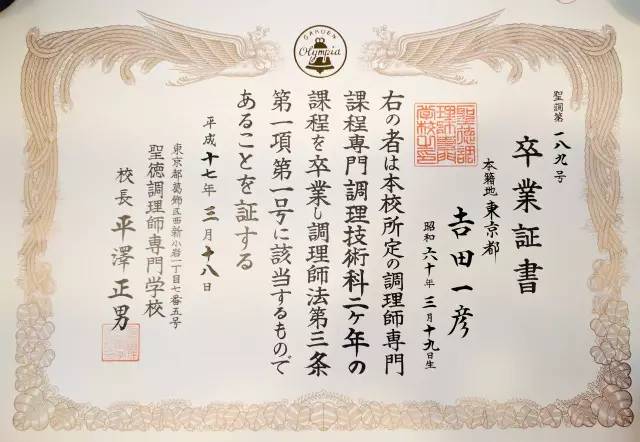 GAKUEN
Olympia
聖調第一八九号
卒業証書
本籍地 東京都
吉田一彦
昭和六十年三月十九日生
聖徳調
理師専
門学校之印
右の者は本校所定の調理師専門
課程専門調理技術科二ヶ年の
課程を卒業し調理師法第三条
第一項第一号に該当するもので
あることを証する
平成十七年三月十八日
東京都葛飾区西新小岩一丁目七番五号
聖徳調理師専門学校
校長 平澤正男